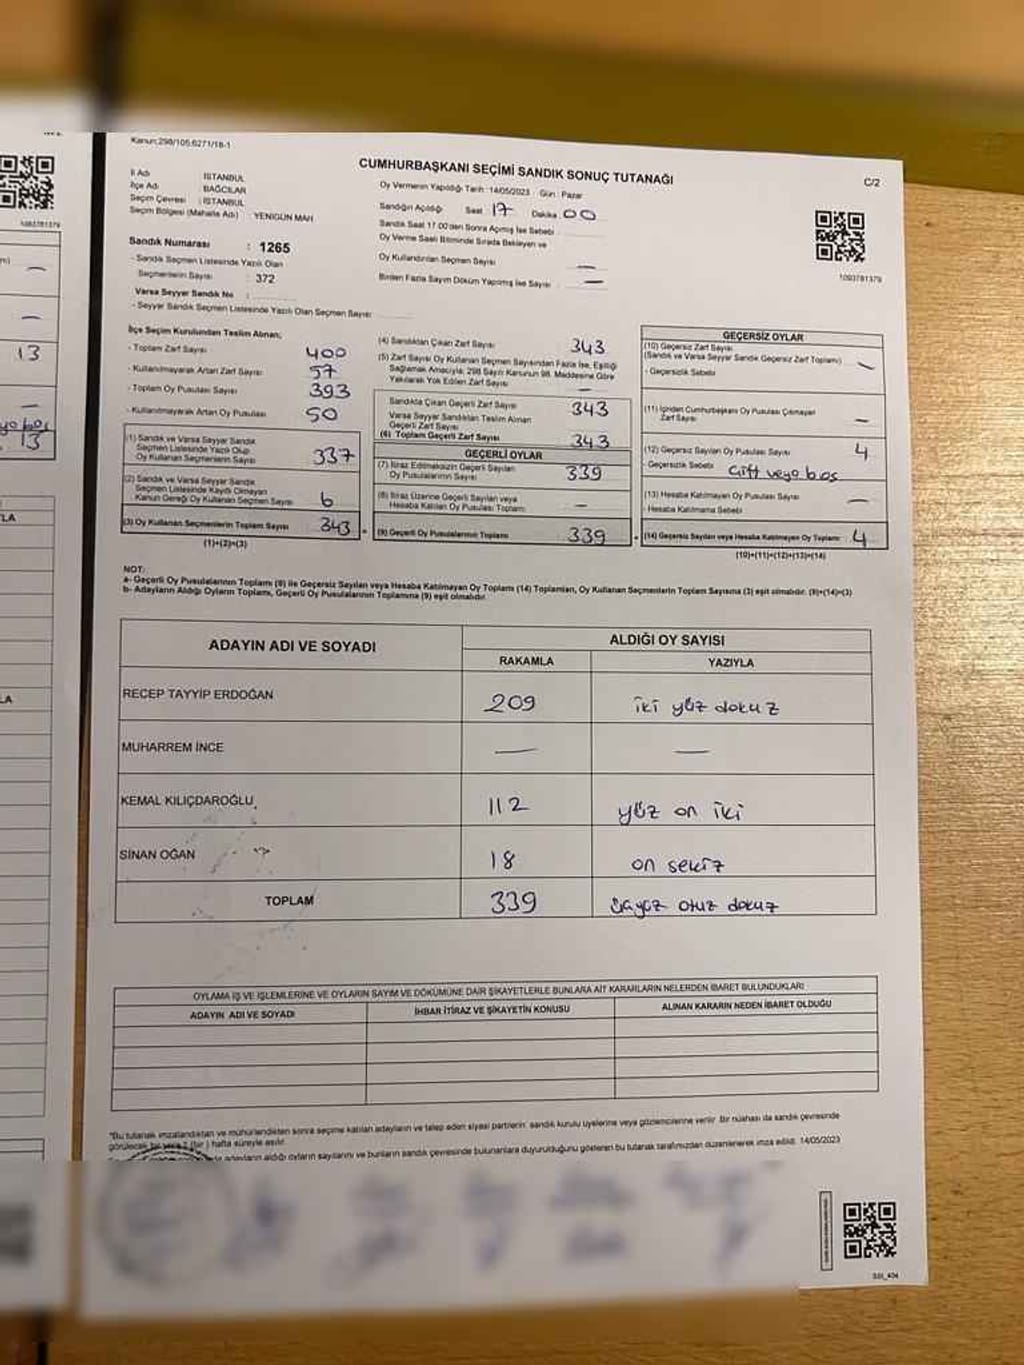 Kanun:298/105.6271/18-1
CUMHURBAŞKANI SEÇİMİ SANDIK SONUÇ TUTANAĞI
C/2
İl Adı : İSTANBUL
İlçe Adı : BAĞCILAR
Seçim Çevresi : İSTANBUL
Seçim Bölgesi (Mahalle Adı) YENİGÜN MAH
Sandık Numarası : 1265
- Sandık Seçmen Listesinde Yazılı Olan
Seçmenlerin Sayısı : 372
Varsa Seyyar Sandık No :
- Seyyar Sandık Seçmen Listesinde Yazılı Olan Seçmen Sayısı:
Oy Vermenin Yapıldığı Tarih :14/05/2023 Gün : Pazar
Sandığın Açıldığı Saat 17 Dakika 00
Sandık Saat 17.00'den Sonra Açılmış İse Sebebi
Oy Verme Saati Bitiminde Sırada Bekleyen ve
Oy Kullandırılan Seçmen Sayısı —
Birden Fazla Sayım Döküm Yapılmış İse Sayısı —
1093781379
1093781379
İlçe Seçim Kurulundan Teslim Alınan;
- Toplam Zarf Sayısı 400
- Kullanılmayarak Artan Zarf Sayısı 57
- Toplam Oy Pusulası Sayısı 393
- Kullanılmayarak Artan Oy Pusulası 50
(1) Sandık ve Varsa Seyyar Sandık
Seçmen Listesinde Yazılı Olup
Oy Kullanan Seçmenlerin Sayısı 337
(2) Sandık ve Varsa Seyyar Sandık
Seçmen Listesinde Kayıtlı Olmayan
Kanun Gereği Oy Kullanan Seçmen Sayısı 6
(3) Oy Kullanan Seçmenlerin Toplam Sayısı 343
(1)+(2)=(3)
(4) Sandıktan Çıkan Zarf Sayısı 343
(5) Zarf Sayısı Oy Kullanan Seçmen Sayısından Fazla İse, Eşitliği
Sağlamak Amacıyla; 298 Sayılı Kanunun 98. Maddesine Göre
Yakılarak Yok Edilen Zarf Sayısı —
Sandıkta Çıkan Geçerli Zarf Sayısı 343
Varsa Seyyar Sandıktan Teslim Alınan
Geçerli Zarf Sayısı
(6) Toplam Geçerli Zarf Sayısı 343
GEÇERLİ OYLAR
(7) İtiraz Edilmeksizin Geçerli Sayılan
Oy Pusulalarının Sayısı 339
(8) İtiraz Üzerine Geçerli Sayılan veya
Hesaba Katılan Oy Pusulası Toplamı —
(9) Geçerli Oy Pusulalarının Toplamı 339
GEÇERSİZ OYLAR
(10) Geçersiz Zarf Sayısı
(Sandık ve Varsa Seyyar Sandık Geçersiz Zarf Toplamı) —
- Geçersizlik Sebebi
(11) İçinden Cumhurbaşkanı Oy Pusulası Çıkmayan
Zarf Sayısı —
(12) Geçersiz Sayılan Oy Pusulası Sayısı 4
- Geçersizlik Sebebi Çift veya boş
(13) Hesaba Katılmayan Oy Pusulası Sayısı —
- Hesaba Katılmama Sebebi
(14) Geçersiz Sayılan veya Hesaba Katılmayan Oy Toplamı 4
(10)+(11)+(12)+(13)=(14)
NOT:
a- Geçerli Oy Pusulalarının Toplamı (9) ile Geçersiz Sayılan veya Hesaba Katılmayan Oy Toplamı (14) Toplamları, Oy Kullanan Seçmenlerin Toplam Sayısına (3) eşit olmalıdır. (9)+(14)=(3)
b- Adayların Aldığı Oyların Toplamı, Geçerli Oy Pusulalarının Toplamına (9) eşit olmalıdır.
ADAYIN ADI VE SOYADI
ALDIĞI OY SAYISI
RAKAMLA YAZIYLA
RECEP TAYYİP ERDOĞAN 209 iki yüz dokuz
MUHARREM İNCE — —
KEMAL KILIÇDAROĞLU 112 yüz on iki
SİNAN OĞAN 18 on sekiz
TOPLAM 339 üçyüz otuz dokuz
OYLAMA İŞ VE İŞLEMLERİNE VE OYLARIN SAYIM VE DÖKÜMÜNE DAİR ŞİKAYETLERLE BUNLARA AİT KARARLARIN NELERDEN İBARET BULUNDUKLARI
ADAYIN ADI VE SOYADI İHBAR İTİRAZ VE ŞİKAYETİN KONUSU ALINAN KARARIN NEDEN İBARET OLDUĞU
*Bu tutanak imzalandıktan ve mühürlendikten sonra seçime katılan adayların ve talep eden siyasi partilerin sandık kurulu üyelerine veya gözlemcilerine verilir. Bir nüshası da sandık çevresinde
görülecek bir yere 1 (bir) hafta süreyle asılır.
adayların aldığı oyların sayılarını ve bunların sandık çevresinde bulunanlara duyurulduğunu gösteren bu tutanak tarafımızdan düzenlenerek imza edildi. 14/05/2023
13
13
LA
LA